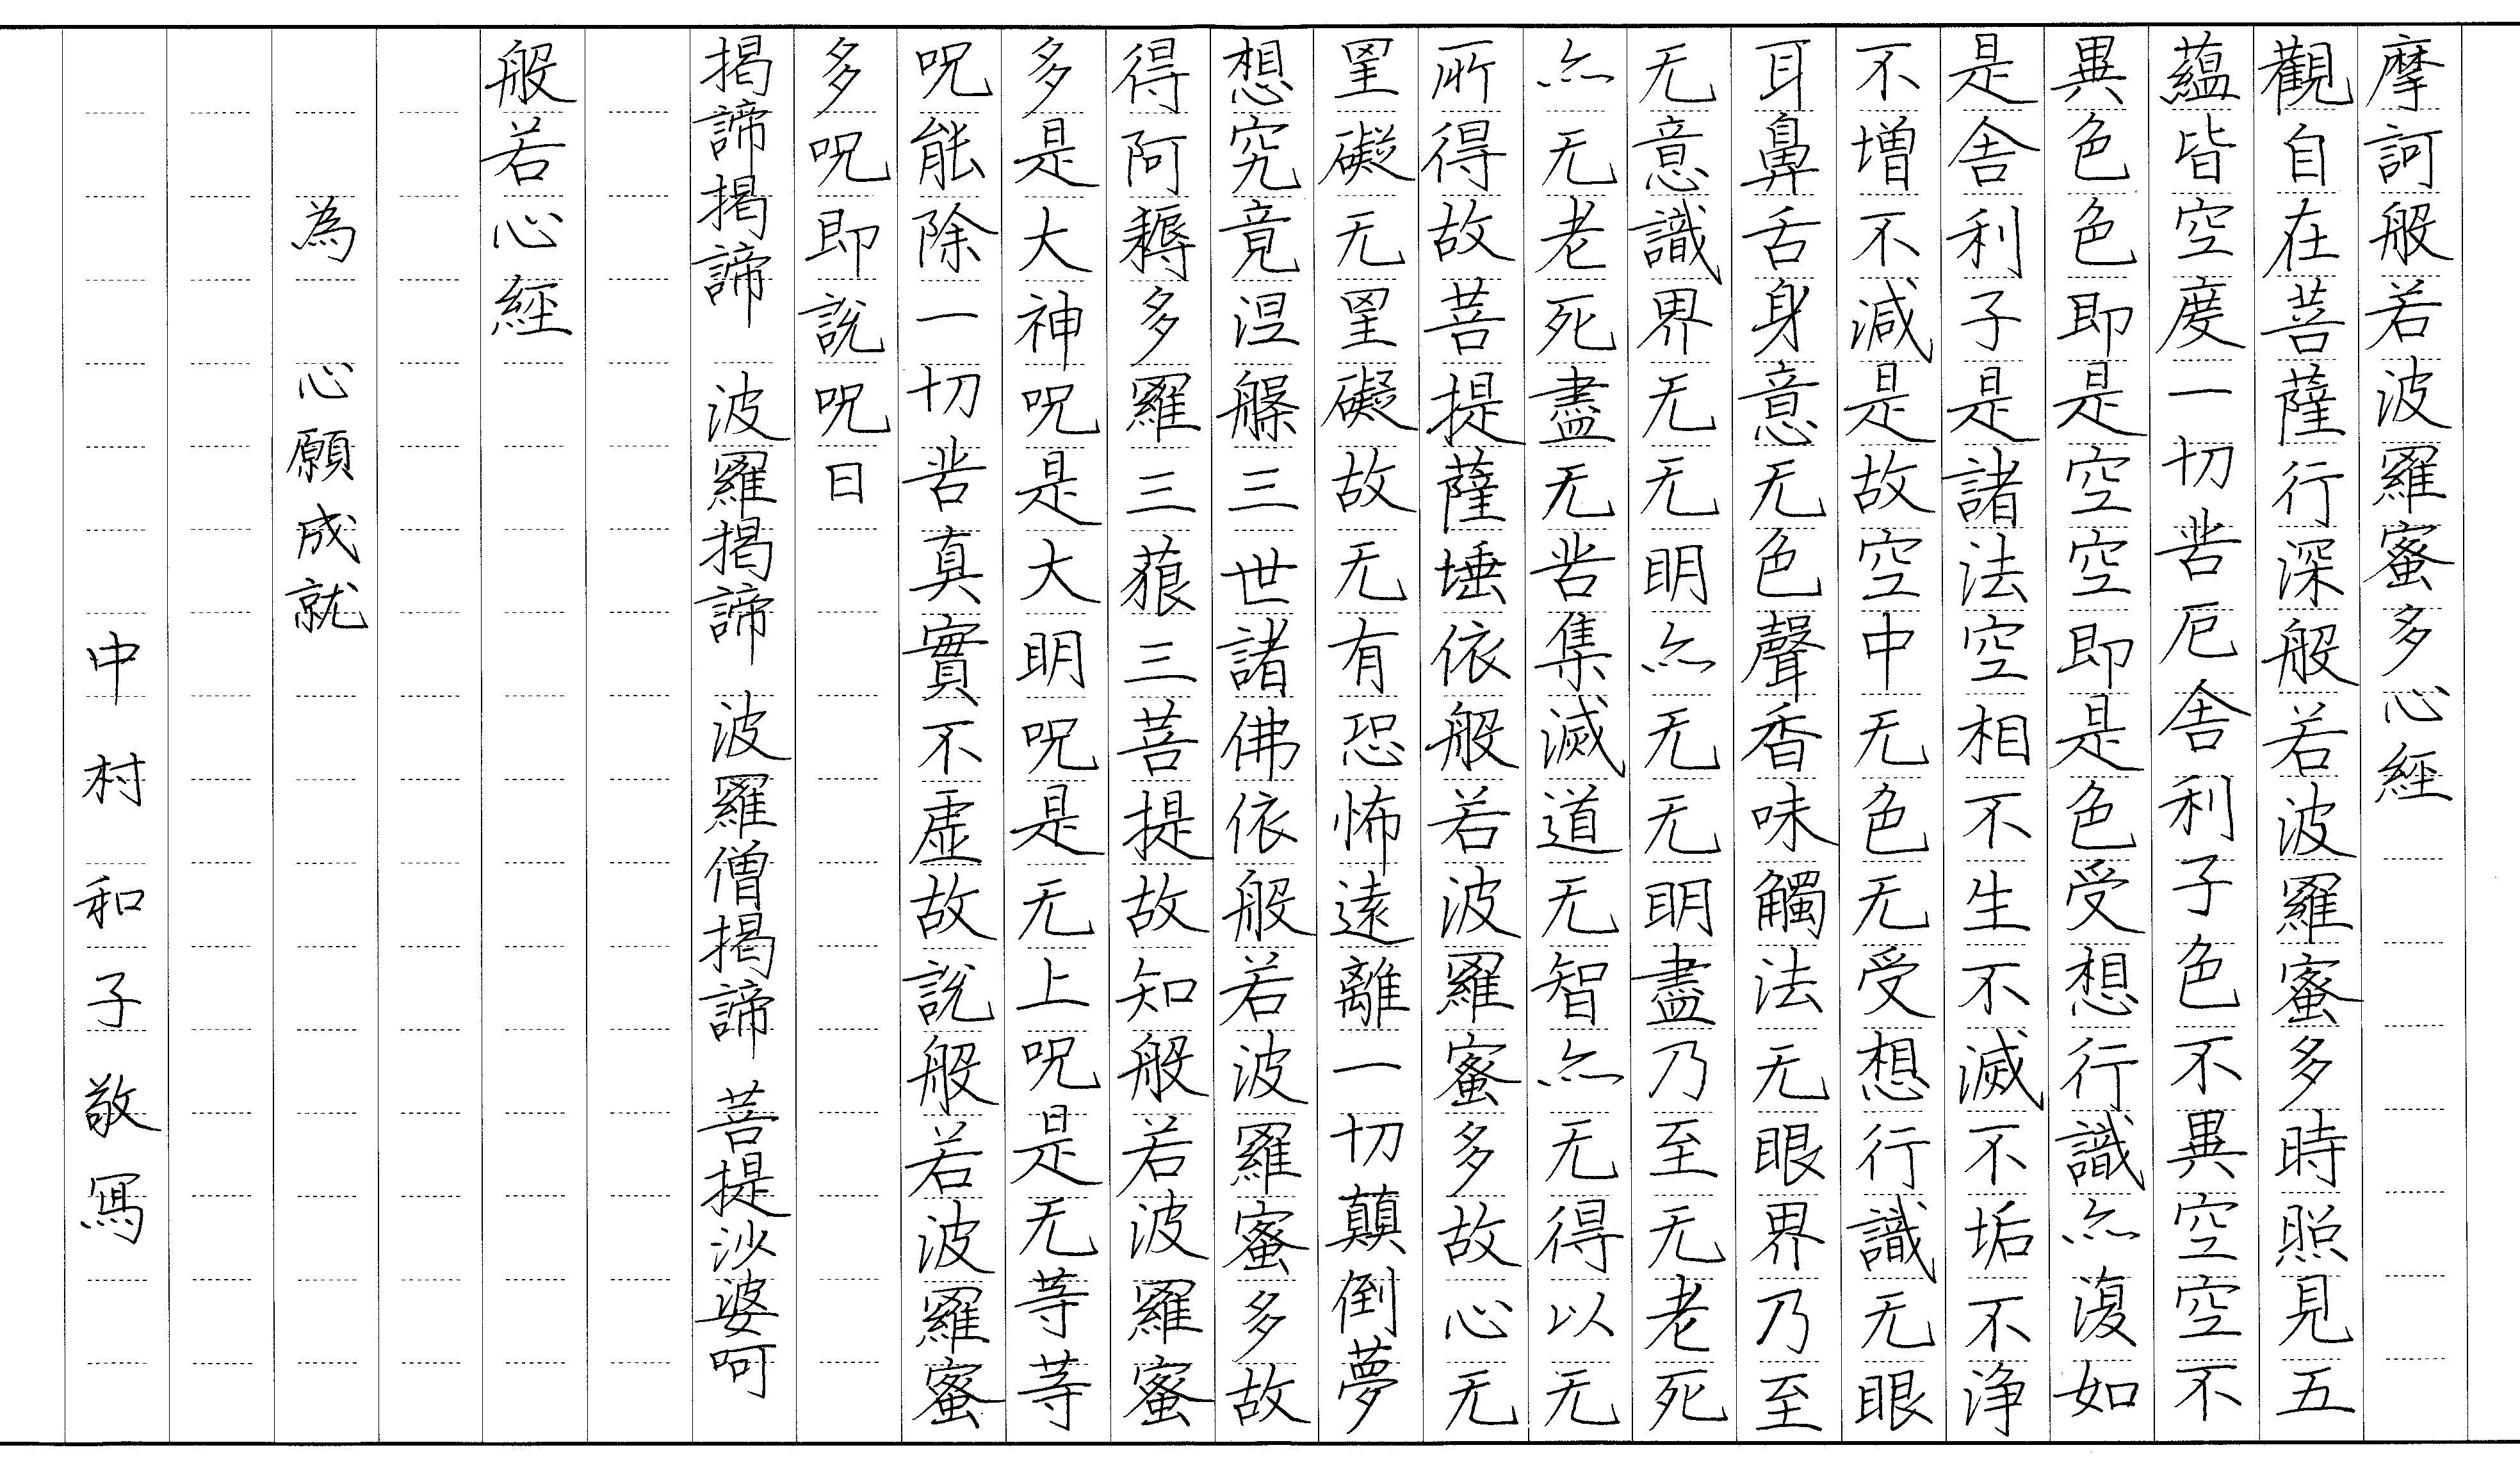 摩訶般若波羅蜜多心經
觀自在菩薩行深般若波羅蜜多時照見五
蘊皆空度一切苦厄舎利子色不異空空不
異色色即是空空即是色受想行識亦復如
是舎利子是諸法空相不生不滅不垢不浄
不増不減是故空中无色无受想行識无眼
耳鼻舌身意无色聲香味觸法无眼界乃至
无意識界无无明亦无无明盡乃至无老死
亦无老死盡无苦集滅道无智亦无得以无
所得故菩提薩埵依般若波羅蜜多故心无
罣礙无罣礙故无有恐怖遠離一切顛倒夢
想究竟涅槃三世諸佛依般若波羅蜜多故
得阿耨多羅三藐三菩提故知般若波羅蜜
多是大神呪是大明呪是无上呪是无等等
呪能除一切苦真實不虚故説般若波羅蜜
多呪即説呪曰
揭諦揭諦 波羅揭諦 波羅僧揭諦 菩提沙婆呵
般若心經
為 心願成就
中村和子敬寫